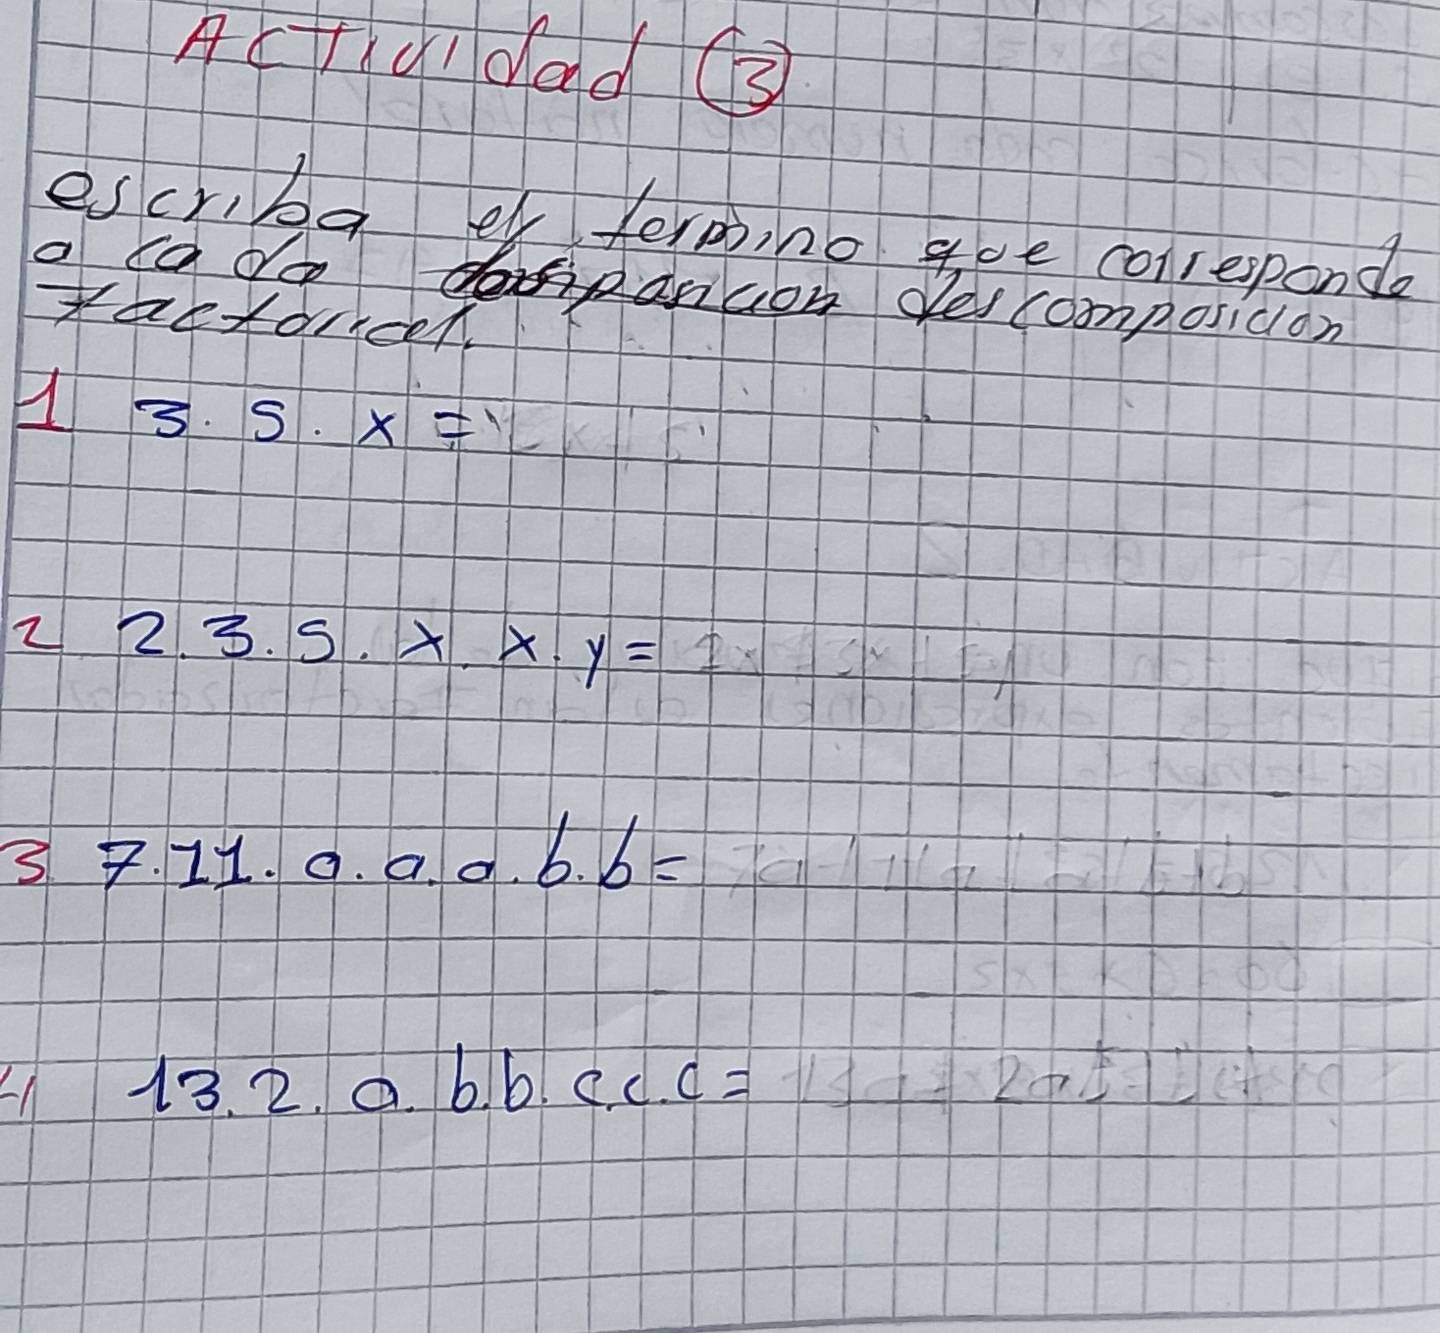 ACTIVIdad (3)
escriba el termino que corresponde
a cada descomposicion
factorical.
1 3. 5. x =
2 2.3.5. x. x. y =
3 7.11. a. a. a. b. b =
4 13. 2. a. b.b. c.c.c =